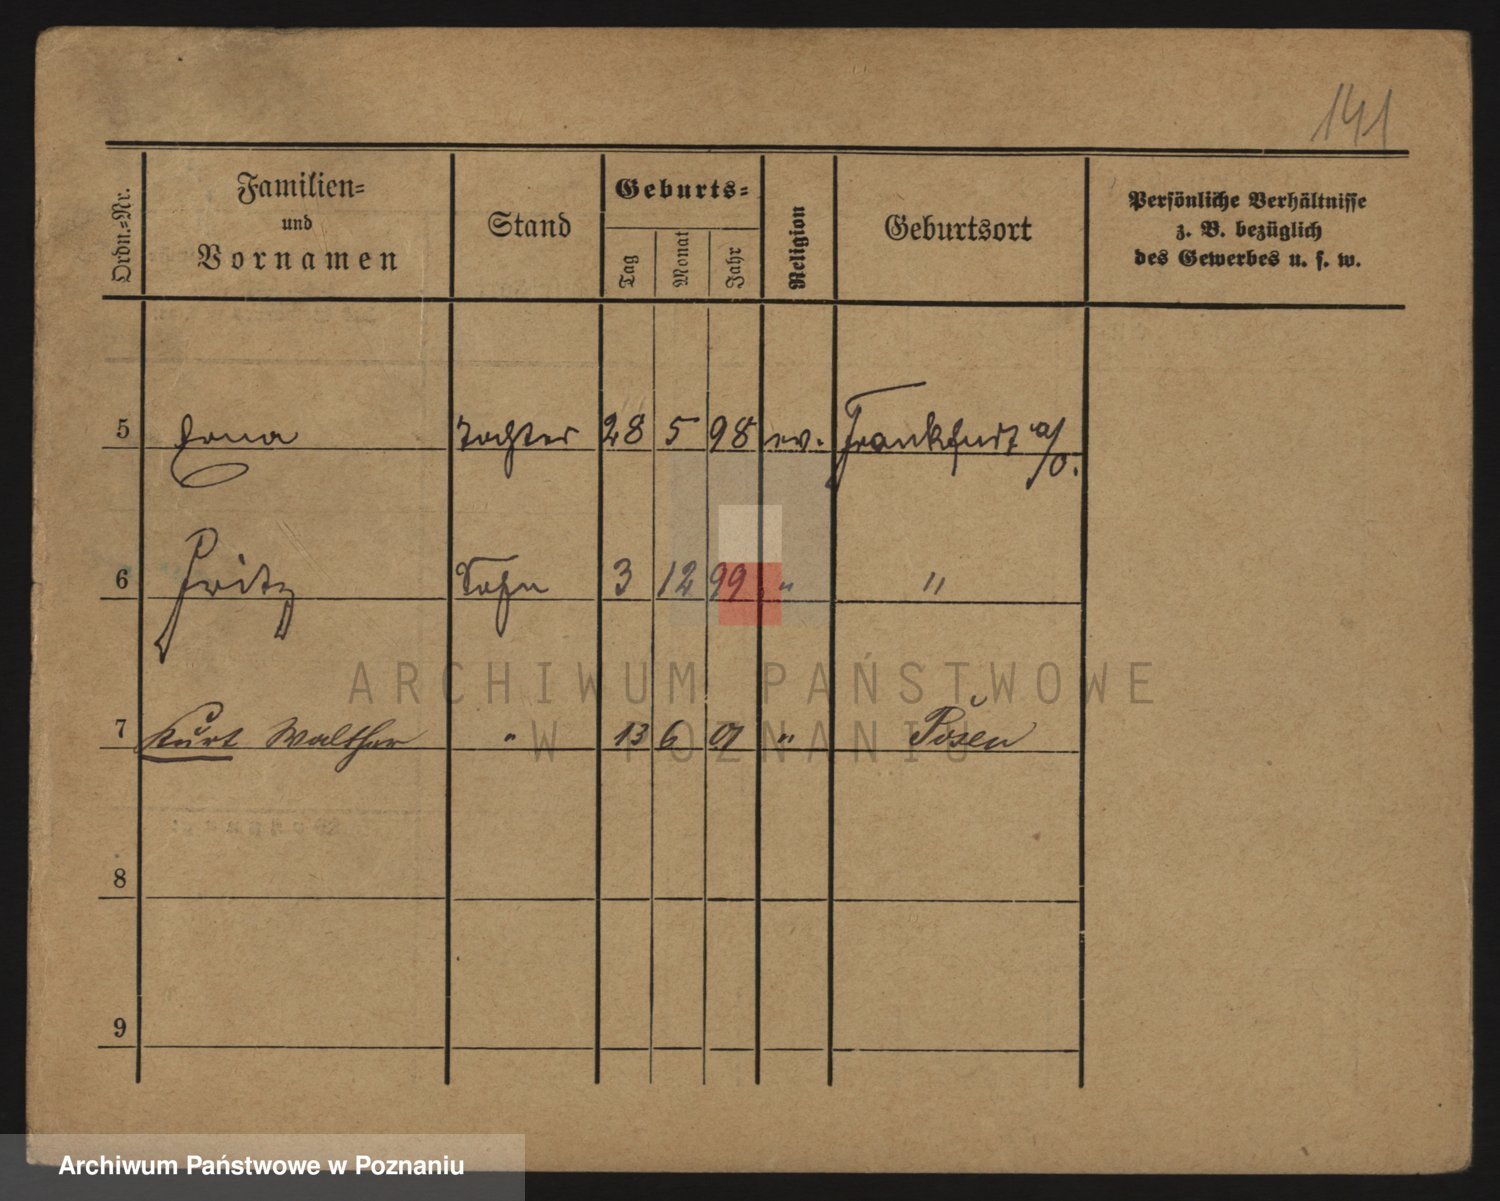 141
Ordn.-Nr.
Familien-
und
Vornamen
Stand
Geburts-
Tag
Monat
Jahr
Religion
Geburtsort
Persönliche Verhältnisse
z. B. bezüglich
des Gewerbes u. s. w.
5 Erna Tochter 28 5 98 ev. Frankfurt a/O.
6 Fritz Sohn 3 12 99 " "
7 Kurt Walther " 13 6 07 " Posen
8
9
ARCHIWUM PAŃSTWOWE
W POZNANIU
Archiwum Państwowe w Poznaniu